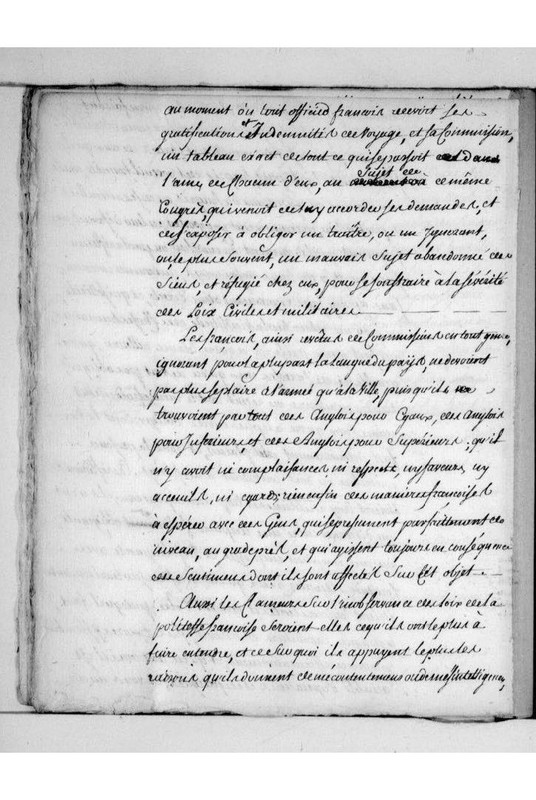 au moment où tout officier francois recevoit ses
gratifications et Indemnités de voyage, et sa Commission,
un tableau exact de tout ce qui se passoit dans
l'ame de Chacun d'eux, au sujet de ce même
Congrès, qui venoit de luy accorder ses demandes, et
de s'exposer à obliger un traitre, ou un Ignorant,
ou, le plus souvent, un mauvais Sujet abandonné des
Siens, et réfugié chez eux, pour se soustraire à la sévérité
des Loix Civiles et militaires.
Les françois, ainsi revêtus de Commissions en tout genre,
ignorant pour la plupart la langue du pays, ne devoient
pas plus se plaire à l'armée qu'à la Ville, puisqu'ils
trouvoient partout des Anglois pour Egaux, des Anglois
pour Inférieurs, et des Anglois pour Supérieurs; qu'il
n'y avoit ni complaisances ni respects, ny faveurs, ny
accueils, ni égards; rien enfin des manieres françoises
à espérer avec des Gens, qui se présument parfaitement de
niveau, au grade près, et qui agissent toujours en conséquence
des Sentimens dont ils sont affectés Sur cet objet.
Aussi les Clameurs Sur l'inobservance des loix de la
politesse françoise Seroient-elles ce qu'ils ont le plus à
faire entendre, et ce Sur quoi ils appuyent le plus les
raisons qu'ils donnent de mécontentemens ou de mesintelligence,